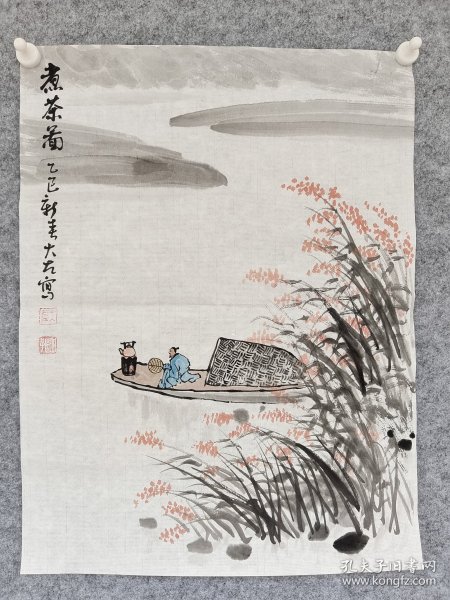 煮茶图
乙巳新春大右写
孔夫子旧书网
www.kongfz.com